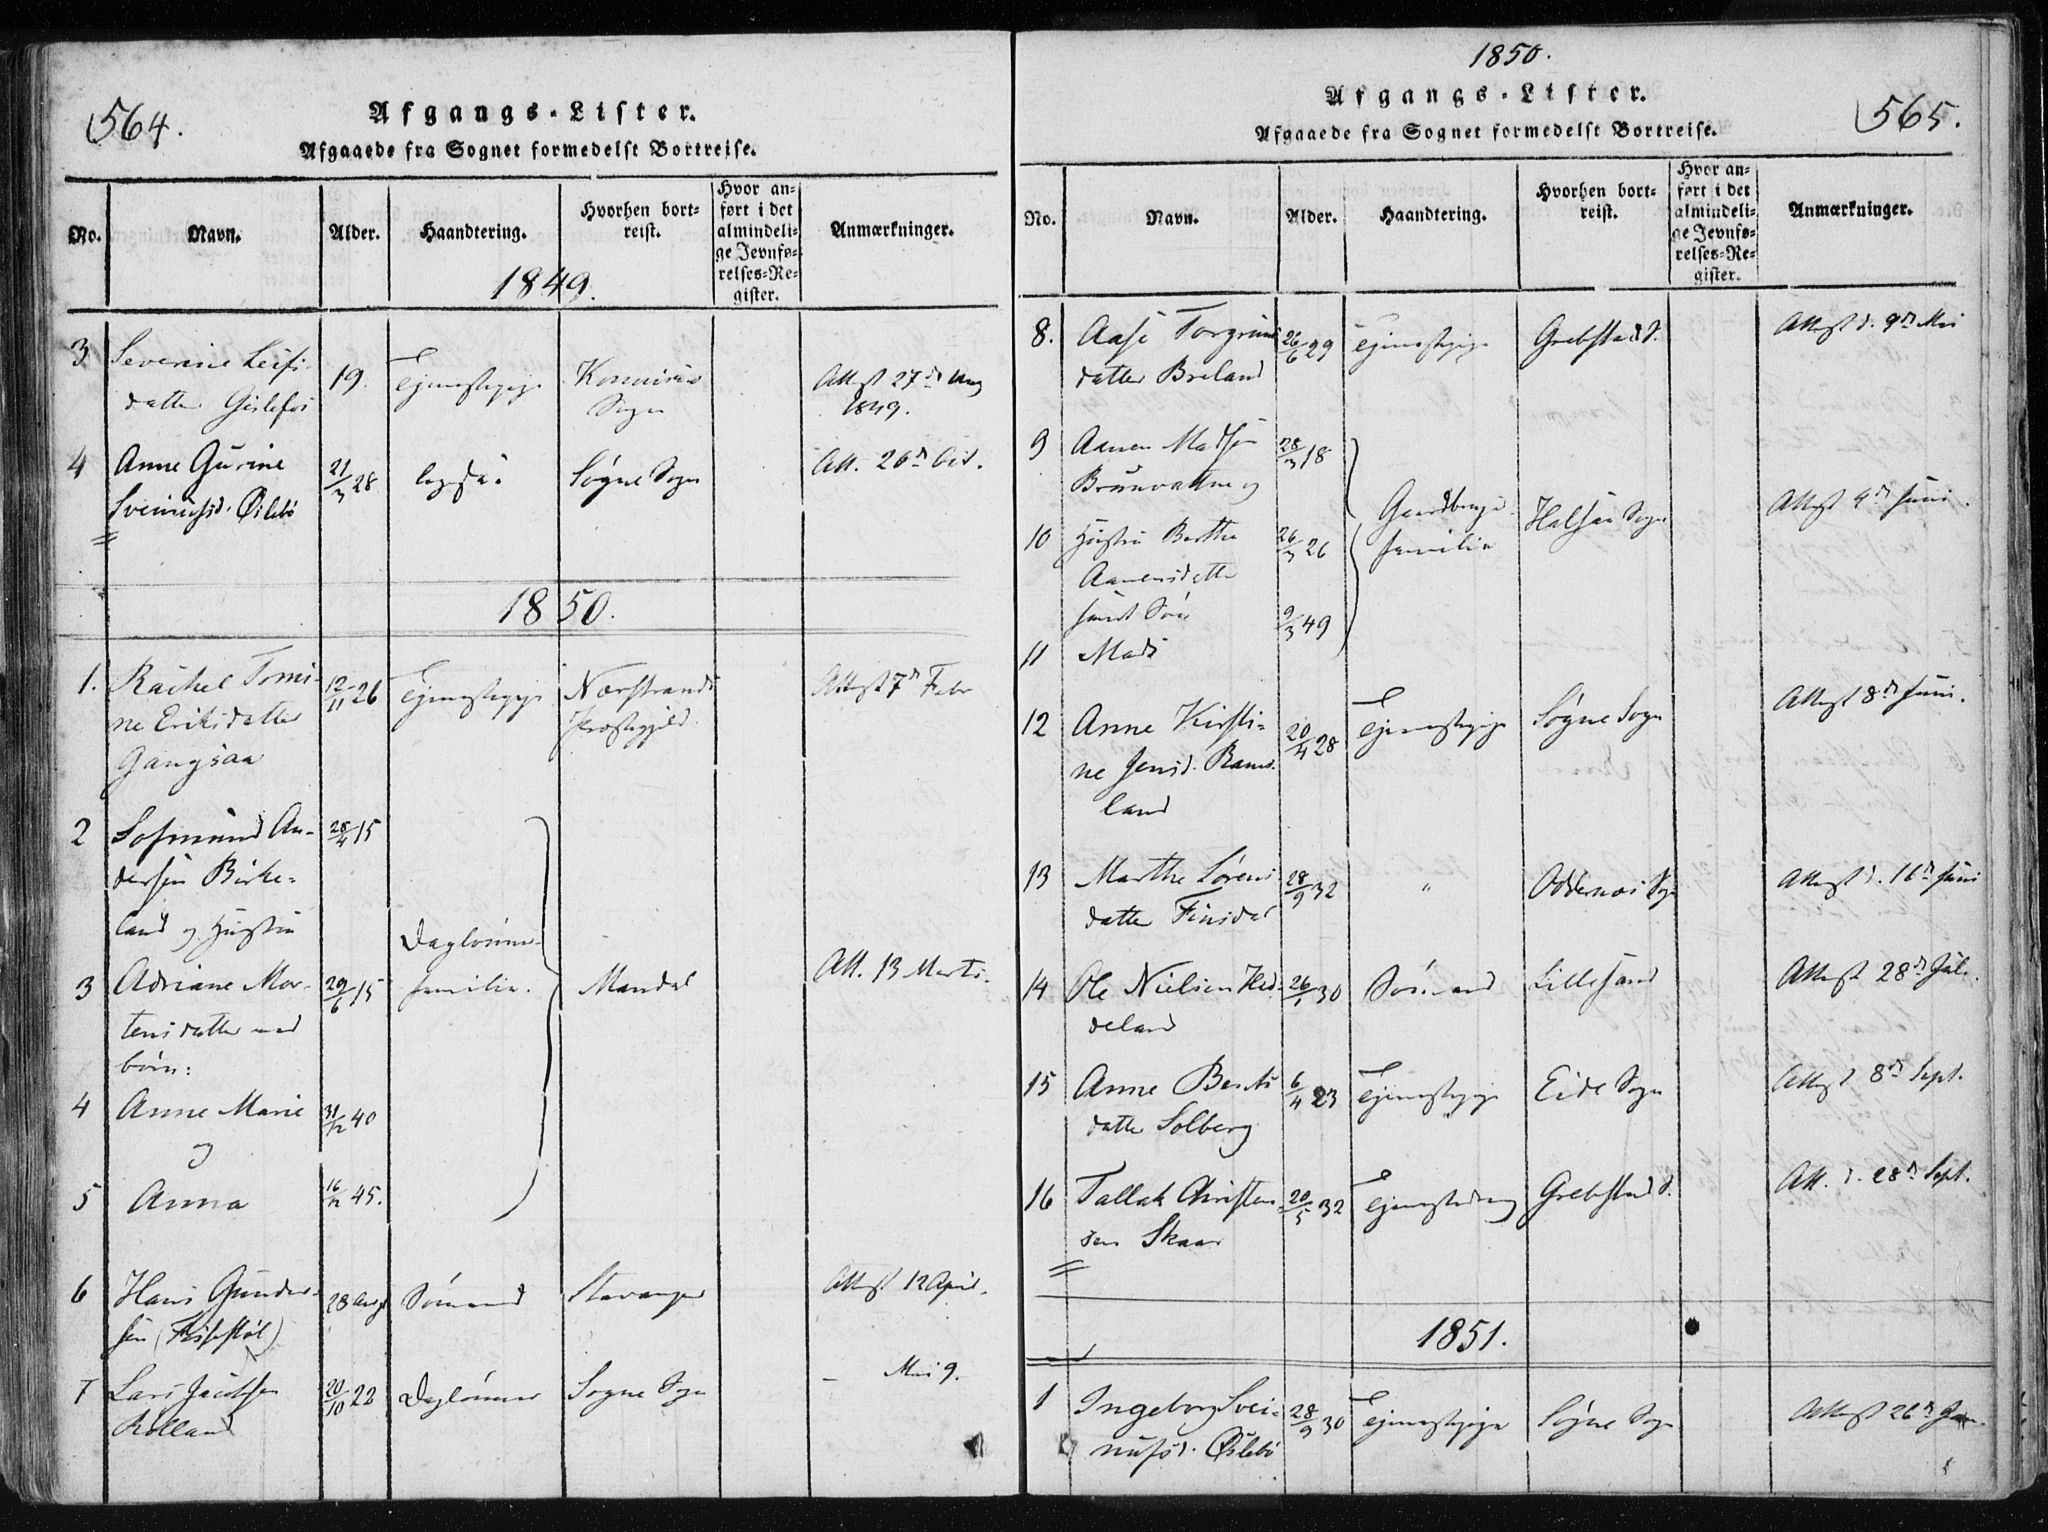 564.
Afgangs-Lister.
Afgaaede fra Sognet formedelst Bortreise.
No. Navn. Alder. Haandtering. Hvorhen bort-
reist. Hvor an-
ført i det
almindeli-
ge Jevnfø-
relses-Re-
gister. Anmærkninger.
1849.
3 Severine Leifs-
datter Gislefos 19. Tjenestepige
Sogn Attest 27de Aug
1849.
4 Anne Gurine
Sveinusd. Øslebø 21/3 28 Søgne Sogn Att. 26de Oct.
1850.
1. Rachel Tomi-
ne Eriksdatter
Gangsaa 12/11 26 Tjenestepige Nærstrands
Præstegjeld. Attest 7de Febr
2 Sosmund An-
dersen Birke-
land og Hustru 28/4 15
Daglønner-
familie. Mandal Att. 13 Marts.
3 Adriane Mor-
tensdatter med
børn: 29/6 15
4 Anne Marie
og 31/12 40
5 Anna 16/12 45.
6 Hans Gunder-
sen 28 Aar Sømand Stavanger Attest 12 April.
7 Lars Jacobsen
Rolland 20/10 22 Daglønner Søgne Sogn — Mai 9.
1850.
Afgangs-Lister.
Afgaaede fra Sognet formedelst Bortreise.
565.
No. Navn. Alder. Haandtering. Hvorhen bort-
reist. Hvor an-
ført i det
almindeli-
ge Jevnfø-
relses-Re-
gister. Anmærkninger.
8. Aase Torgrims
datter Breland 26/6 29 Tjenestepige Grebstad S. Attest d. 9de Mai
9 Aanen Madsen
Brunvatne og 28/3 18
Gaardbruger-
familie Halsaa Sogn Attest 4de Juni.
10 Hustru Berthe
Aanensdatter 26/3 26
samt Søn
11 Mads 9/3 49
12 Anne Kirsti-
ne Jensd. Rams-
land 20/4 28 Tjenestepige Søgne Sogn Attest 8de Juni.
13 Marthe Sørens
datter Finsdal 28/9 32 " Oddernæs Sogn Attest d. 16de Juni
14 Ole Nielsen Hed-
deland 26/1 30 Sømand Lillesand Attest 28de Juli.
15 Anne Bents
datter Solberg 6/4 23 Tjenestepige Eide Sogn Attest 8de Sept.
16 Tallak Christen-
sen Skaar 20/5 32 Tjenestedreng Grebstad S. Att. d. 28de Sept.
1851.
1 Ingeborg Svei-
nusd. Øslebø 28/9 30 Tjenestepige Søgne Sogn Attest 26de Jan.